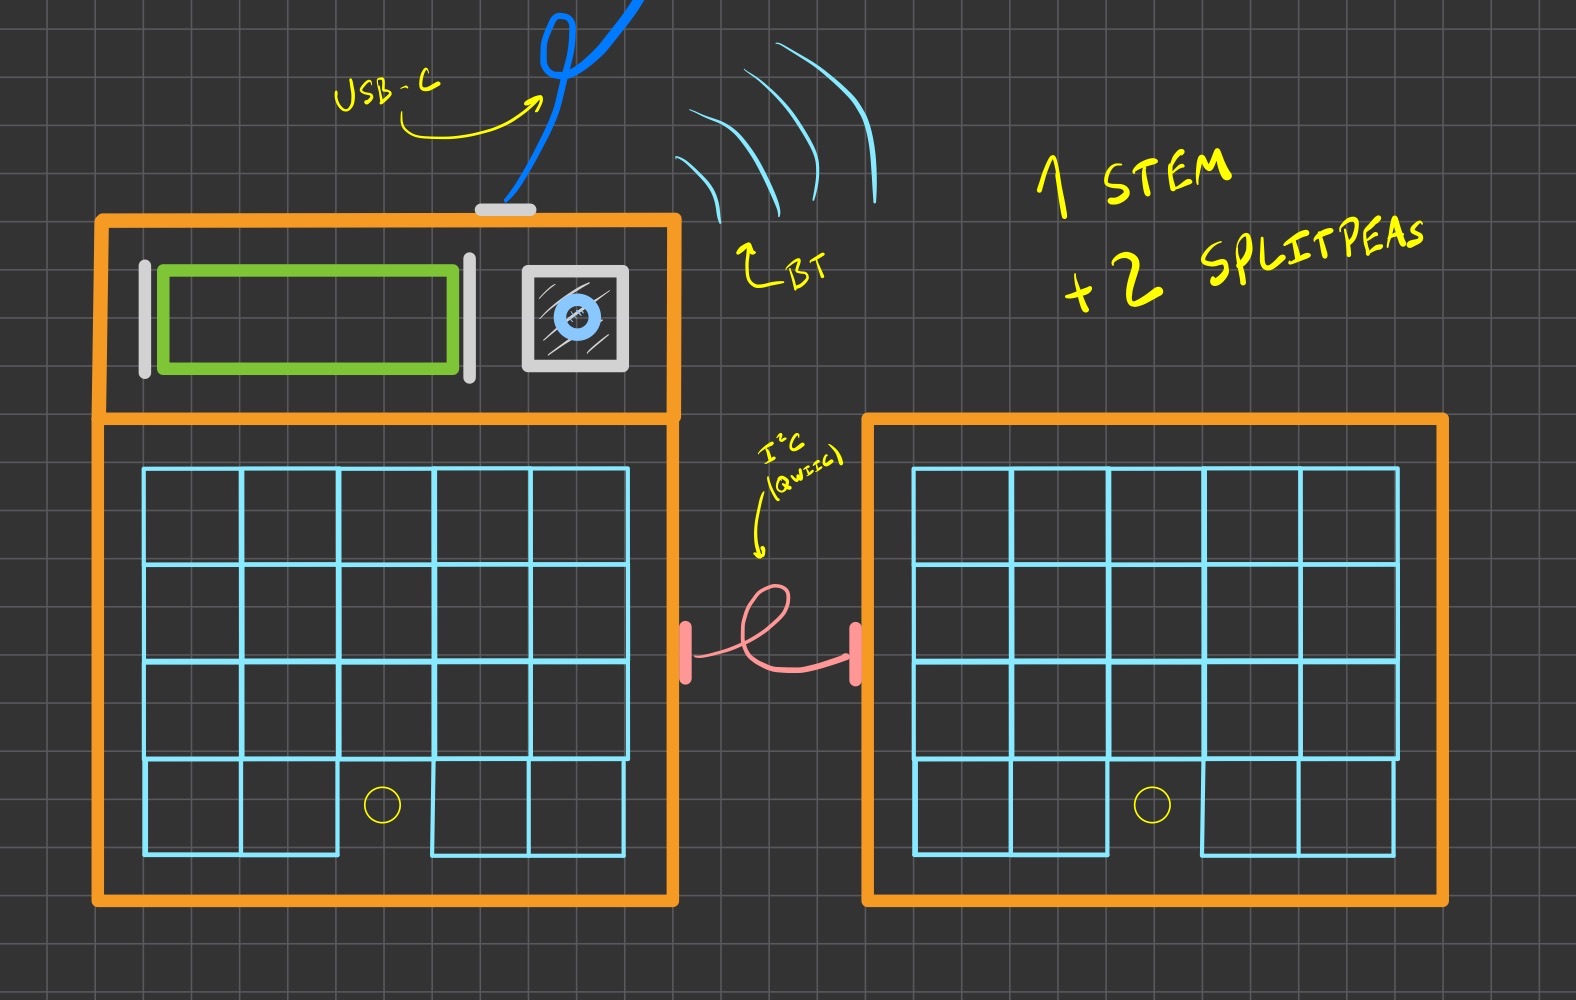 USB-C
1 STEM
+ 2 SPLITPEAS
BT
I²C
(QWIIC)